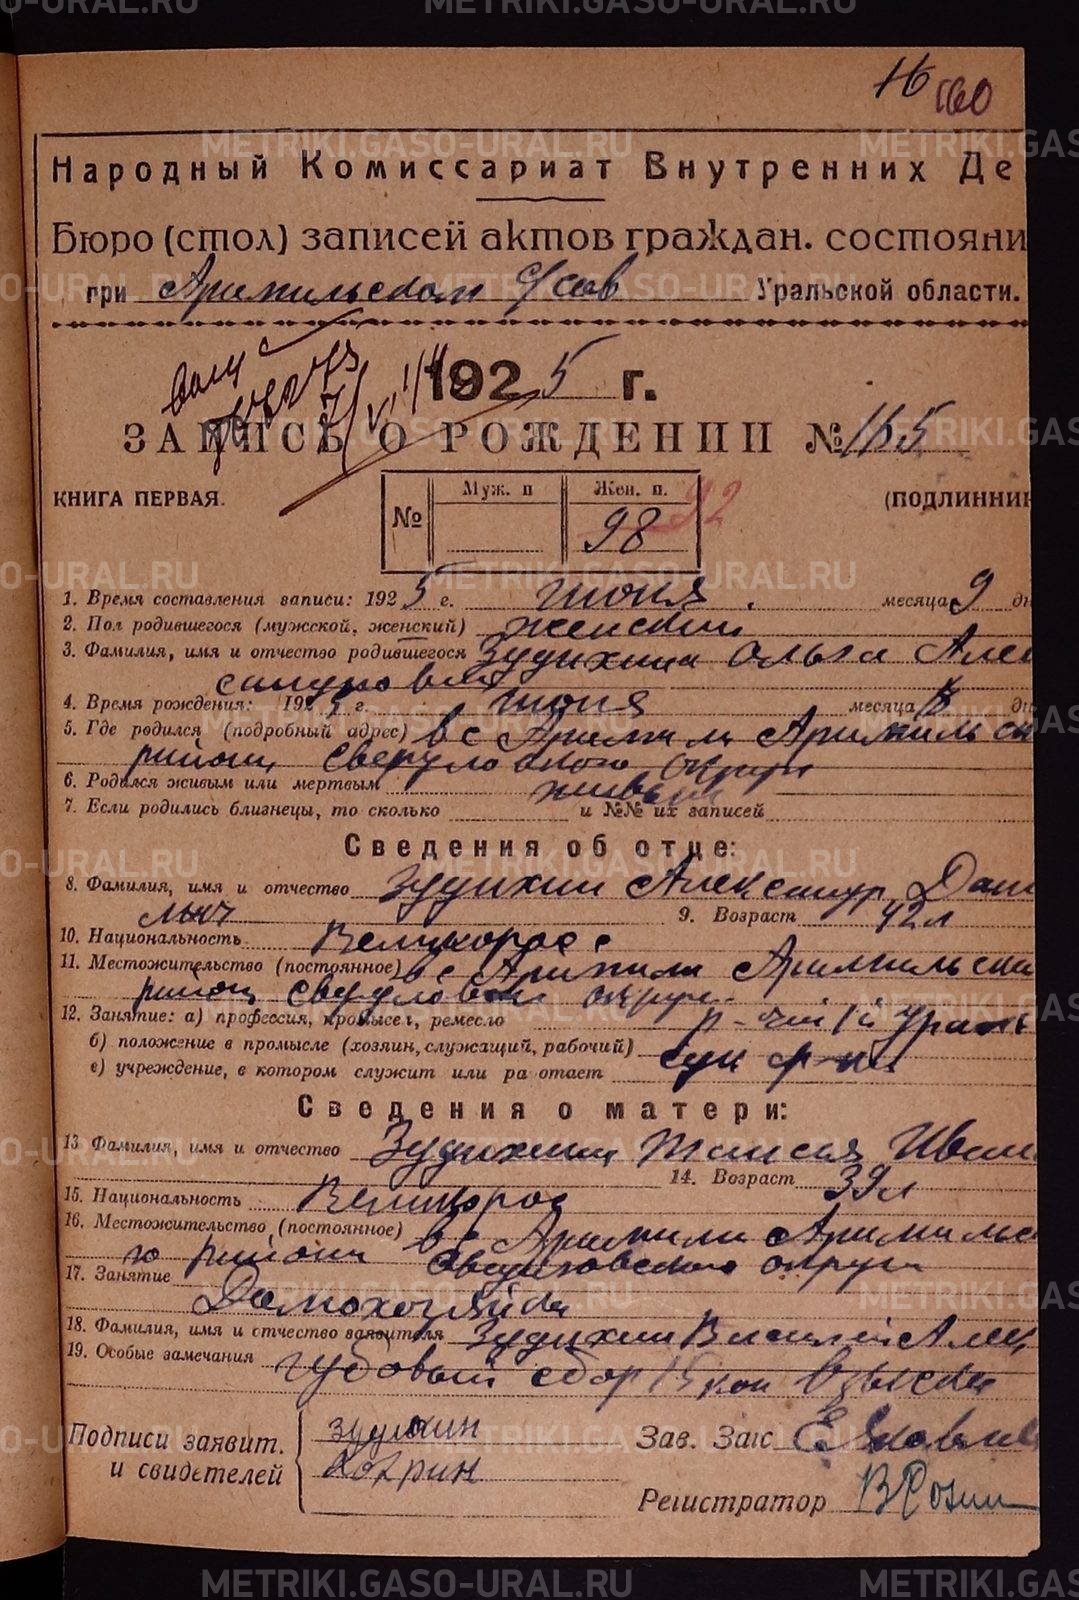 16 160
Народный Комиссариат Внутренних Де
Бюро (стол) записей актов граждан. состояни
при Арамильском с/сов Уральской области.
1925 г.
ЗАПИСЬ О РОЖДЕНИИ № 165
КНИГА ПЕРВАЯ. (ПОДЛИННИК
Муж. п Жен. п. 92
№ 98
1. Время составления записи: 1925 г. июня месяца 9 дн
2. Пол родившегося (мужской, женский) женский
3. Фамилия, имя и отчество родившегося Зудихина Ольга Алек
сандровна
4. Время рождения: 1925 г. июня месяца 8 дн
5. Где родился (подробный адрес) в с Арамили Арамильск
района Свердловского округа
6. Родился живым или мертвым живым
7. Если родились близнецы, то сколько и №№ их записей
Сведения об отце:
8. Фамилия, имя и отчество Зудихин Александр Дани
лыч 9. Возраст 42 л
10. Национальность Великоросс
11. Местожительство (постоянное) в с Арамили Арамильска
район Свердловск округа
12. Занятие: а) профессия, промысел, ремесло
б) положение в промысле (хозяин, служащий, рабочий) сук ф-ки
в) учреждение, в котором служит или ра отает
Сведения о матери:
13 Фамилия, имя и отчество Зудихина Таисия Иван
14. Возраст 39 л
15. Национальность Великорос
16. Местожительство (постоянное) в с Арамили Арамильс
го района Свердловского округа
17. Занятие
Домохозяйка
18. Фамилия, имя и отчество заявителя Зудихин Василий Алек
19. Особые замечания сбор 15 коп взыскан
Подписи заявит. Зудихин Зав. Загс Е. Яковлев
и свидетелей
Регистратор В Розин
METRIKI.GASO-URAL.RU